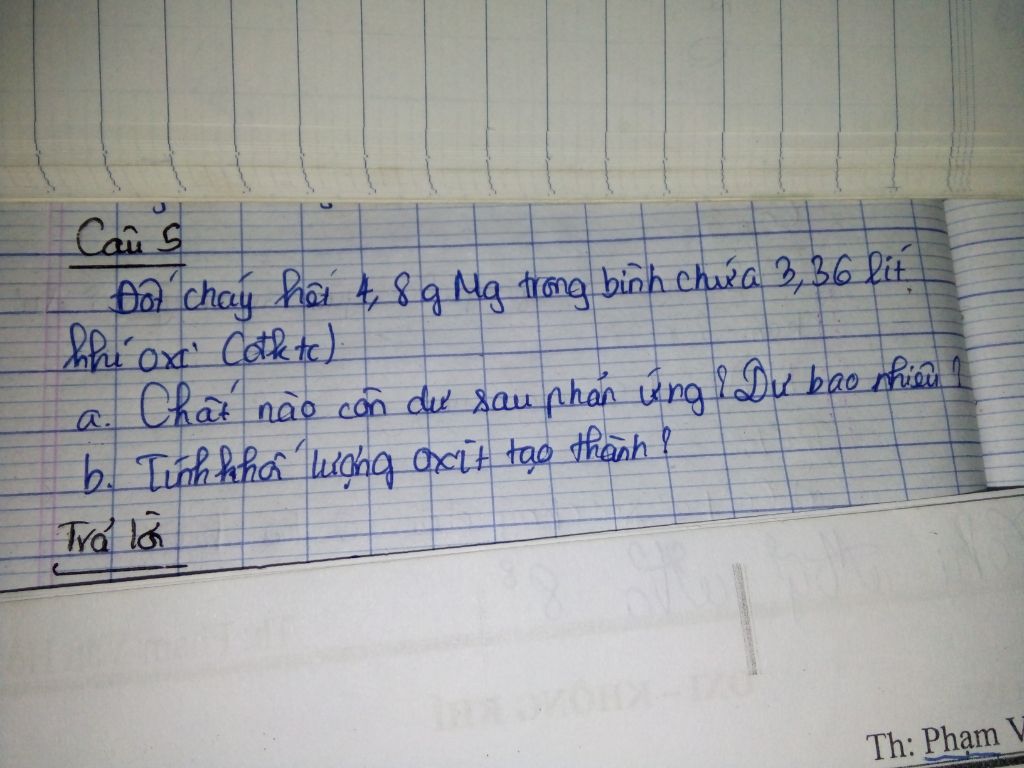 Câu 5
Đốt cháy hết 4,8g Mg trong bình chứa 3,36 lít
khí oxi (đktc)
a. Chất nào còn dư sau phản ứng? Dư bao nhiêu?
b. Tính khối lượng oxit tạo thành?
Trả lời
Th: Phạm V